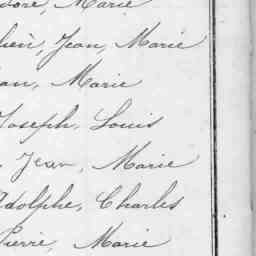 Marie
Jean, Marie
Marie
Joseph, Louis
Jean, Marie
Adolphe, Charles
Pierre, Marie